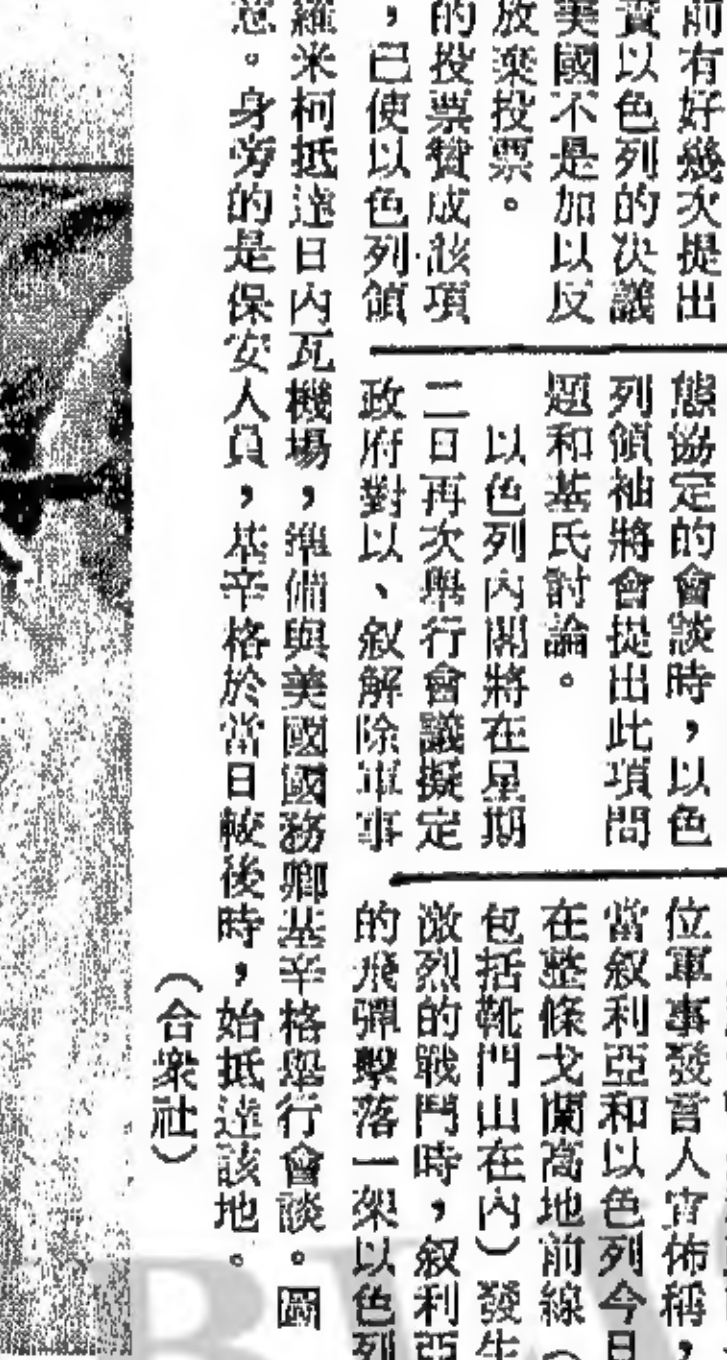 前有好幾次提出
責以色列的決議
美國不是加以反
放棄投票。
的投票贊成該項
，已使以色列領
態協定的會談時，以色
列領袖將會提出此項問
題和基氏討論。
以色列內閣將在星期
二日再次舉行會議擬定
政府對以、叙解除軍事
位軍事發言人宣佈稱，
當叙利亞和以色列今日
在整條戈蘭高地前線（
包括靴門山在內）發生
激烈的戰鬥時，叙利亞
的飛彈擊落一架以色列
羅米柯抵達日內瓦機場，準備與美國國務卿基辛格舉行會談。圖
意。身旁的是保安人員，基辛格於當日較後時，始抵達該地。
（合衆社）